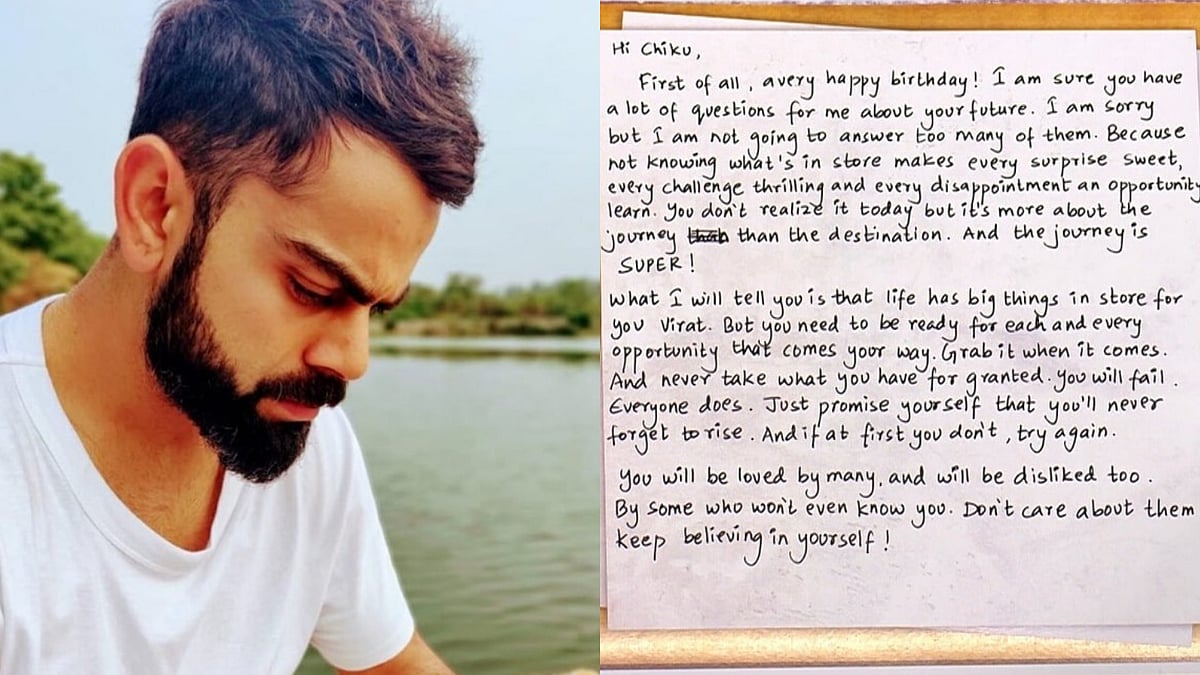 Hi Chiku,
First of all, a very happy birthday! I am sure you have
a lot of questions for me about your future. I am sorry
but I am not going to answer too many of them. Because
not knowing what's in store makes every surprise sweet,
every challenge thrilling and every disappointment an opportunity
learn. You don't realize it today but it's more about the
journey than the destination. And the journey is
SUPER!
What I will tell you is that life has big things in store for
you Virat. But you need to be ready for each and every
opportunity that comes your way. Grab it when it comes.
And never take what you have for granted. You will fail.
Everyone does. Just promise yourself that you'll never
forget to rise. And if at first you don't, try again.
You will be loved by many, and will be disliked too.
By some who won't even know you. Don't care about them
keep believing in yourself!